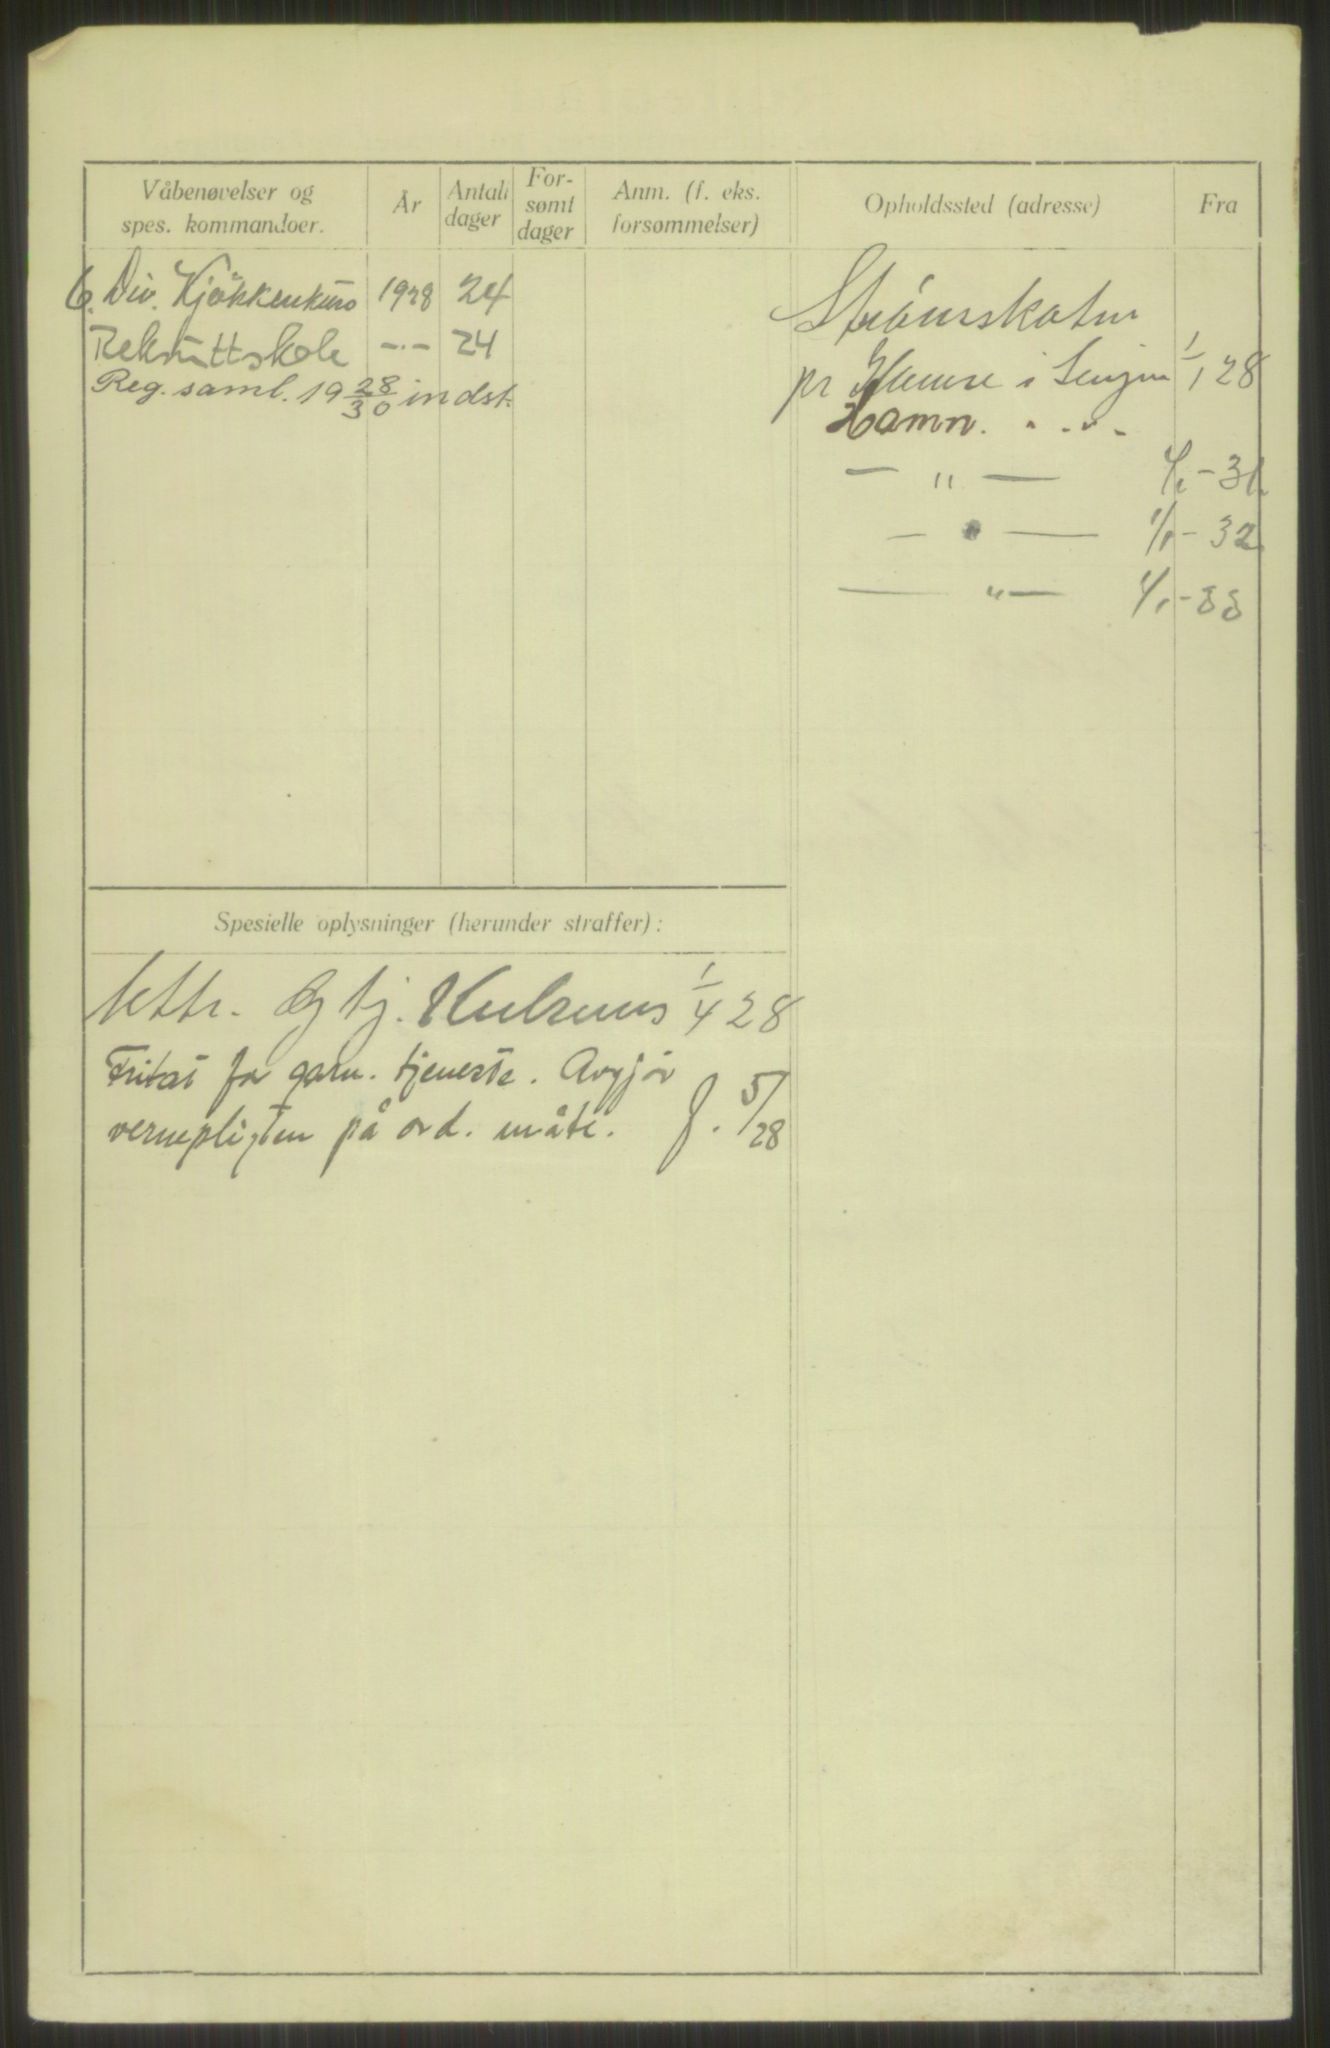 Våbenøvelser og
spes. kommandoer.
År
Antall
dager
For-
sømt
dager
Anm. (f. eks.
forsømmelser)
Opholdssted (adresse)
Fra
6. Div. Kjøkkenkurs 1928 24
Rekruttskole -"- 24
Reg. saml. 19 28/30 indst.
pr i Senjen 1/1 28
Hamn. " . " .
— " — 1/1 - 31.
— " — 1/1 - 32.
— " — 1/1 - 33
Spesielle oplysninger (herunder straffer):
1/4 28
Fritas for garn. tjeneste. Avgjør
vernepligten på ord. måte. 5/28